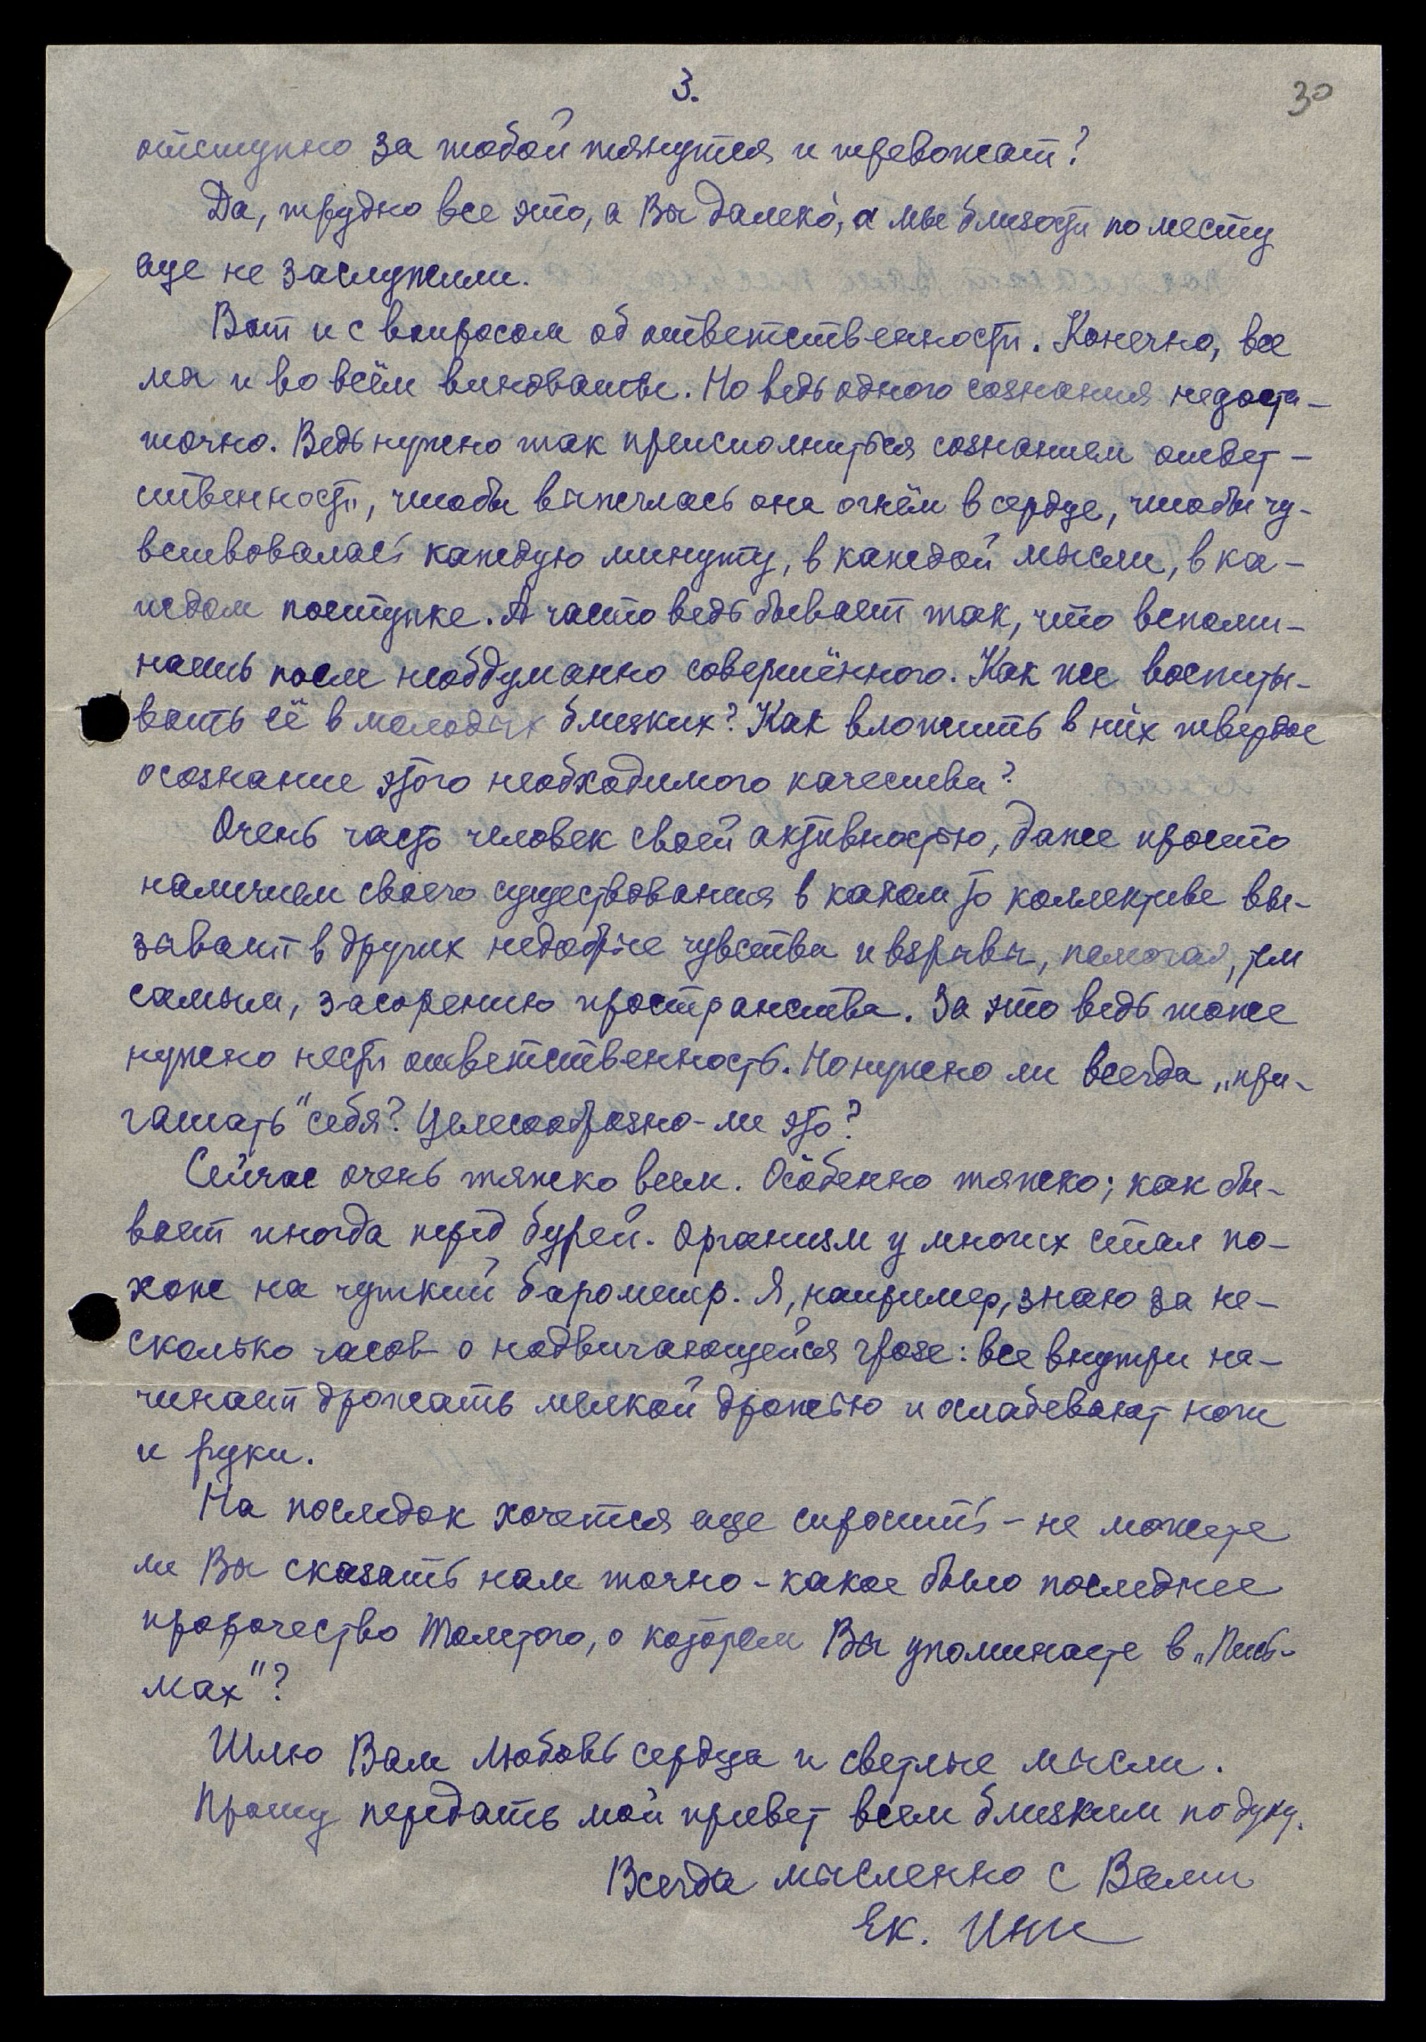 3.
30
отступно за тобой тянутся и тревожат?
Да, трудно все это, а Вы далеко, а мы близости по месту
еще не заслужили.
Вот и с вопросом об ответственности. Конечно, все
мы и во всём виноваты. Но ведь одного сознания недоста-
точно. Ведь нужно так преисполниться сознанием ответ-
ственности, чтобы выжглась она огнём в сердце, чтобы чу-
вствовалась каждую минуту, в каждой мысли, в ка-
ждом поступке. А часто ведь бывает так, что вспоми-
наешь после необдуманно совершённого. Как же воспиты-
вать её в молодых близких? Как вложить в них твердое
осознание этого необходимого качества?
Очень часто человек своей активностью, даже просто
наличием своего существования в каком то коллективе вы-
зывает в других недобрые чувства и взрывы, помогая, тем
самым, засорению пространства. За это ведь тоже
нужно нести ответственность. Но нужно ли всегда „при-
гашать" себя? Целесообразно-ли это?
Сейчас очень тяжко всем. Особенно тяжко; как бы-
вает иногда перед бурей. Организм у многих стал по-
хож на чуткий барометр. Я, например, знаю за не-
сколько часов о надвигающейся грозе: все внутри на-
чинает дрожать мелкой дрожью и ослабевают ноги
и руки.
На последок хочется еще спросить - не можете
ли Вы сказать нам точно - какое было последнее
пророчество Толстого, о котором Вы упоминаете в „Пись-
мах"?
Шлю Вам любовь сердца и светлые мысли.
Прошу передать мой привет всем близким по духу.
Всегда мысленно с Вами
Ек. Инге